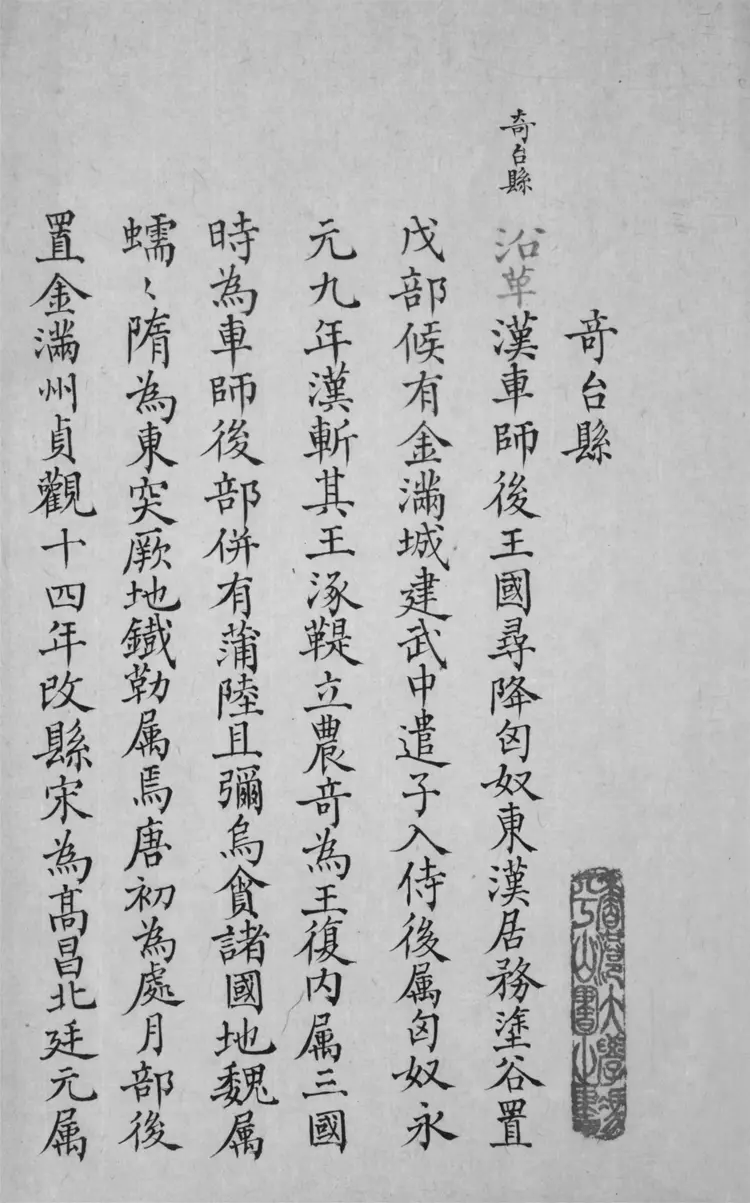 奇台縣
奇台縣
沿革漢車師後王國尋降匈奴東漢居務塗谷置
戊部候有金滿城建武中遣子入侍後属匈奴永
元九年漢斬其王涿鞮立農奇為王復内属三國
時為車師後部併有蒲陸且彌烏貪諸國地魏属
蠕〻隋為東突厥地鐵勒属焉唐初為處月部後
置金滿州貞觀十四年改縣宋為髙昌北廷元属